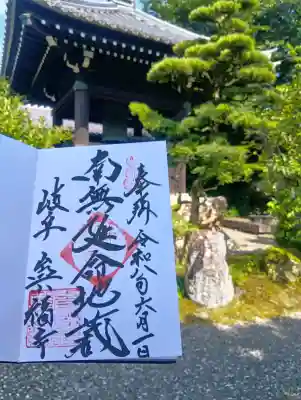 奉拝 令和八年六月一日
南無延命地蔵
岐阜 興福寺